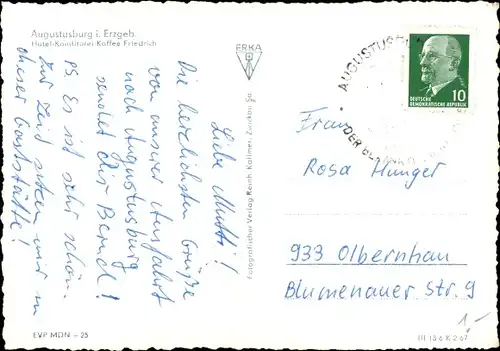 Augustusburg i. Erzgeb.
Hotel-Konditorei-Kaffee Friedrich
ERKA
Liebe Mutti!
Die herzlichsten Grüße
von unserer Ausfahrt
nach Augustusburg
sendet Dir Bernd!
PS. Es ist sehr schön.
Zur Zeit sitzen wir in
dieser Gaststätte!
Fotografischer Verlag Reinh. Kallmer, Zwickau Sa.
AUGUSTUSBURG
DER
DEUTSCHE
DEMOKRATISCHE REPUBLIK
10
Frau
Rosa Hunger
933 Olbernhau
Blumenauer Str. 9
1.-
EVP MDN – 25